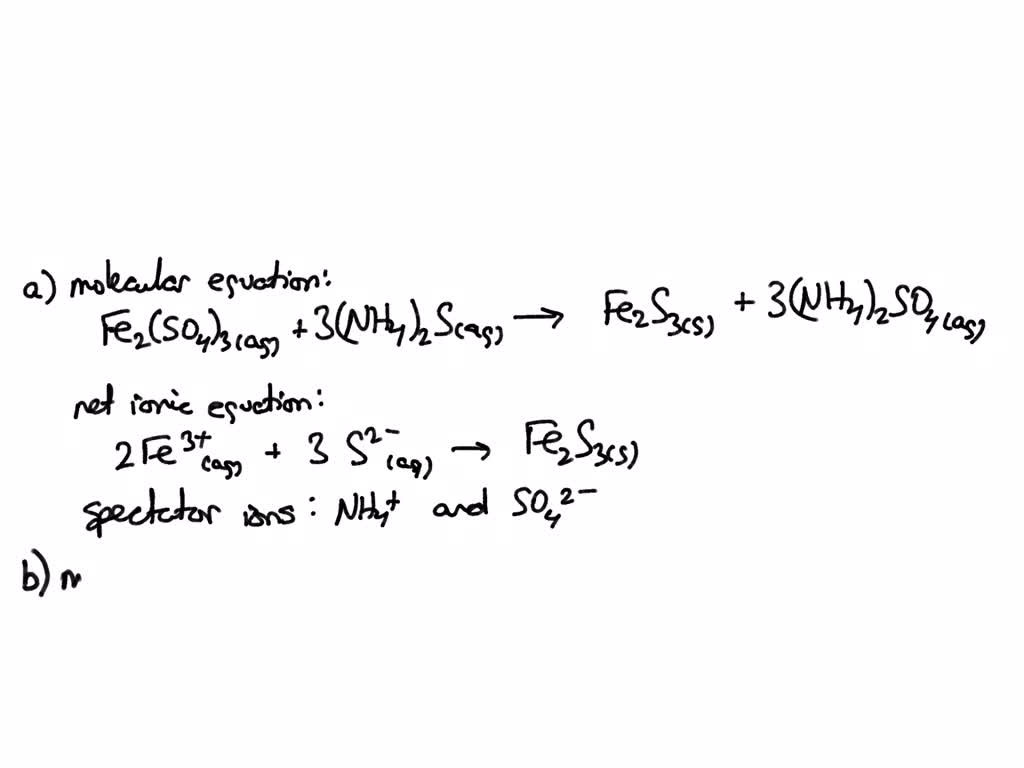 a) molecular equation:
Fe₂(SO₄)₃(aq) + 3(NH₄)₂S(aq) → Fe₂S₃(s) + 3(NH₄)₂SO₄(aq)
net ionic equation:
2Fe³⁺(aq) + 3 S²⁻(aq) → Fe₂S₃(s)
spectator ions: NH₄⁺ and SO₄²⁻
b) m